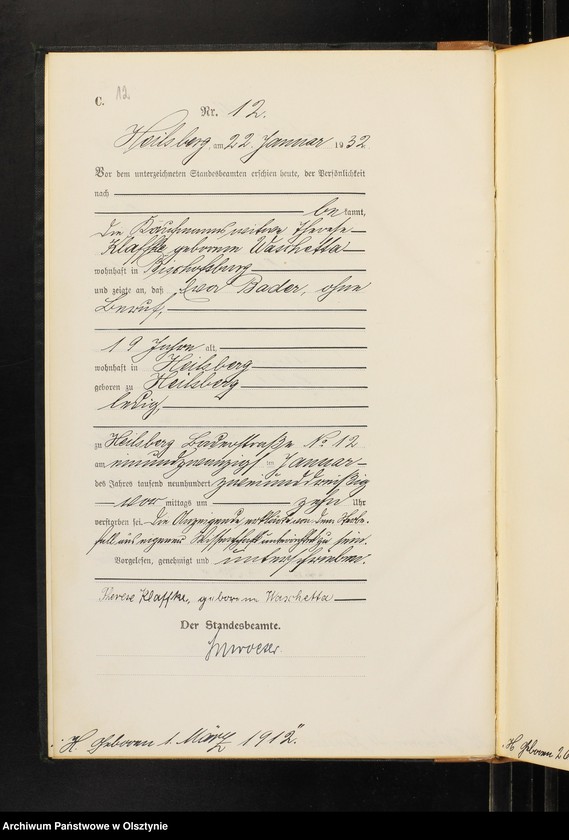 C. 12.
Nr. 12.
Heilsberg, am 22. Januar 1932.
Vor dem unterzeichneten Standesbeamten erschien heute, der Persönlichkeit
nach
bekannt,
die Kaufmannswitwe Therese
Klaffke geborene Waschetta
wohnhaft in Bischofsburg
und zeigte an, daß Eva Bader, ohne
Beruf,
19 Jahre alt,
wohnhaft in Heilsberg
geboren zu Heilsberg
ledig,
zu Heilsberg Baderstraße No 12
am einundzwanzigsten Januar
des Jahres tausend neunhundert zweiunddreißig
vor mittags um zehn Uhr
verstorben sei. Die Anzeigende erklärte von dem Sterbe-
fall aus eigener Wissenschaft unterrichtet zu sein.
Vorgelesen, genehmigt und unterschrieben.
Therese Klaffke, geborene Waschetta
Der Standesbeamte.
H. Geboren 1. März 1912."
H. Geboren 26
Archiwum Państwowe w Olsztynie